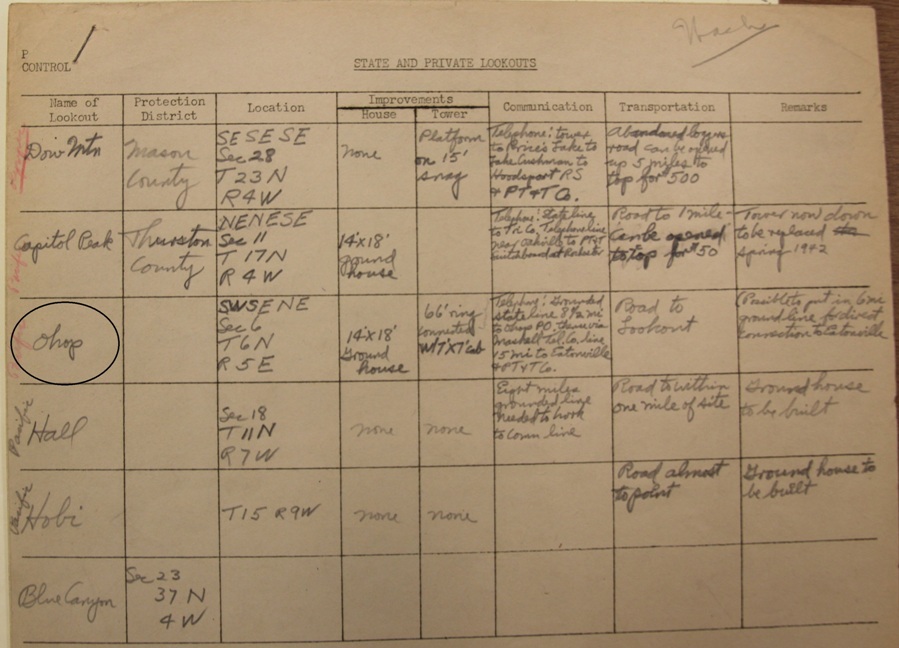 P
CONTROL
STATE AND PRIVATE LOOKOUTS
Name of
Lookout
Protection
District
Location
Improvements
House
Tower
Communication
Transportation
Remarks
Dow Mtn
Mason
County
SESESE
Sec 28
T 23 N
R4W
none
Platform
on 15'
snag
Telephone: tower
to Price's Lake to
Lake Cushman to
Hoodsport RS
& PT&T Co.
Abandoned logging
road can be opened
up 5 miles to
top for $500
Capitol Peak
Thurston
County
NENESE
Sec 11
T 17N
R 4W
14'x18'
ground
house
Telephone: State line
to Tri Co. Telephone line
near Oakville to PT&T
Switchboard at Rochester
Road to 1 mile-
Can be opened
to top for $50
Tower now down
to be replaced
spring 1942
Ohop
SWSENE
Sec 6
T6N
R 5E
14'x18'
Ground
house
66' ring
connected
W/7'x7' cab
Telephone: Grounded
state line 8½ mi
to Ohop PO. thence via
Mashall Tel. Co. line
15 mi to Eatonville
& PT&T Co.
Road to
Lookout
(Possible to put in 6 mi
ground line for direct
connection to Eatonville
Pacific
Hall
Sec 18
T11N
R7W
none
none
Eight miles
grounded line
needed to hook
to Conn line
Road to within
one mile of site
Ground house
to be built
Pacific
Hobi
T15 R9W
none
none
Road almost
to point
Ground house to
be built
Blue Canyon
Sec 23
37 N
4 W